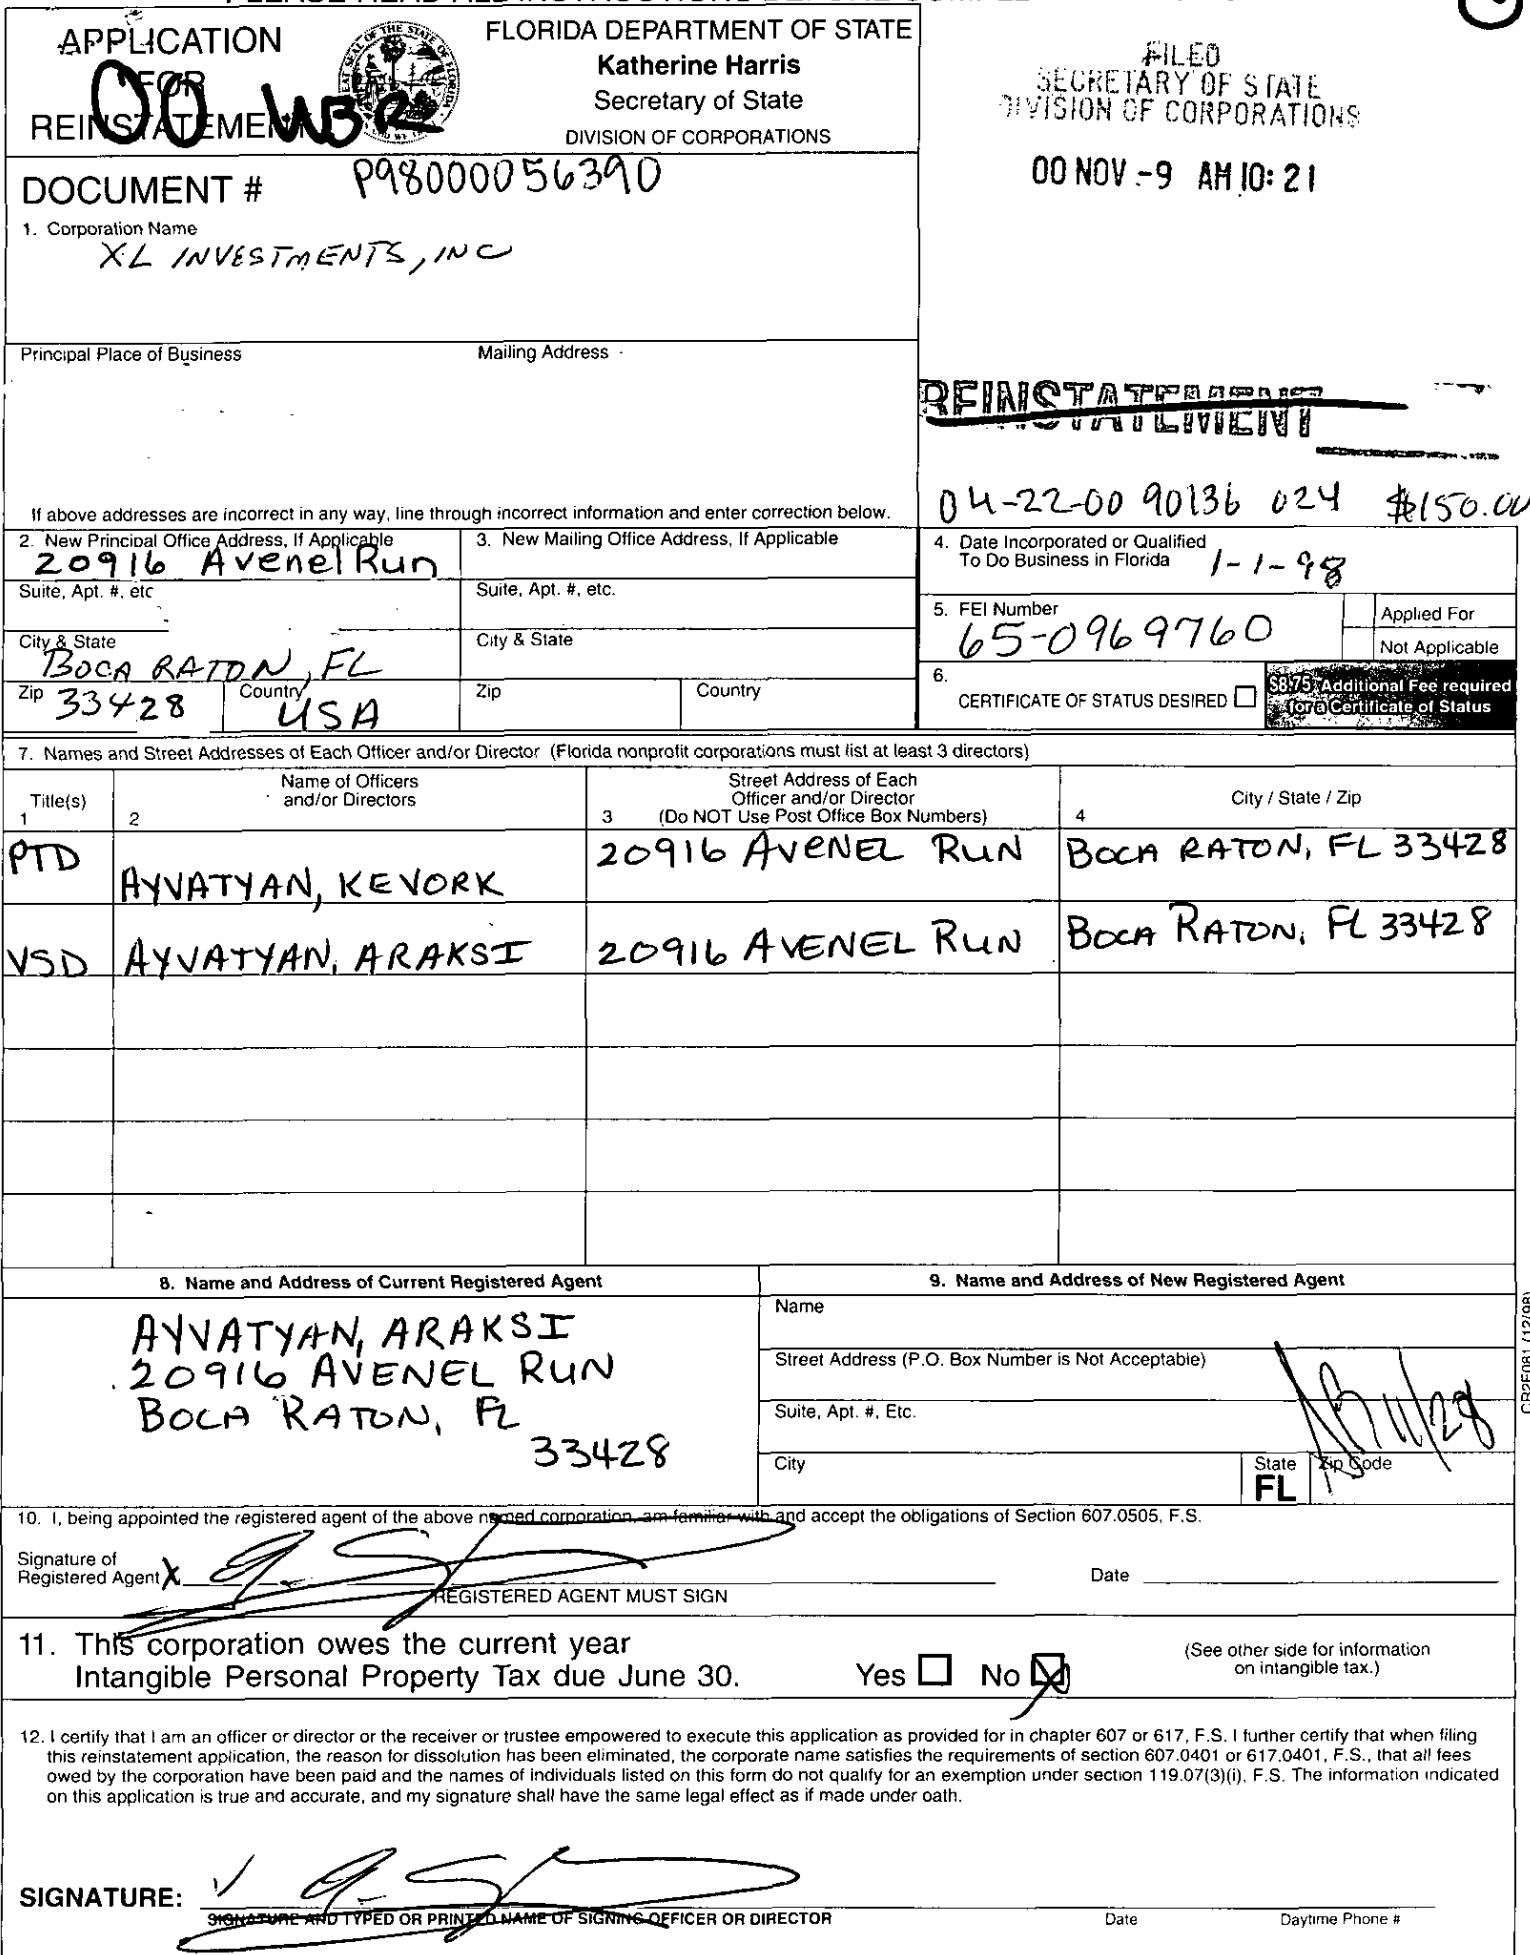 APPLICATION
FOR
REINSTATEMENT
00 UBR
FLORIDA DEPARTMENT OF STATE
Katherine Harris
Secretary of State
DIVISION OF CORPORATIONS
FILED
SECRETARY OF STATE
DIVISION OF CORPORATIONS
00 NOV -9 AM 10: 21
DOCUMENT # P98000056390
1. Corporation Name
XL INVESTMENTS, INC
Principal Place of Business
Mailing Address
REINSTATEMENT
04-22-00 90136 024 $150.00
If above addresses are incorrect in any way, line through incorrect information and enter correction below.
2. New Principal Office Address, If Applicable
20916 Avenel Run
Suite, Apt. #, etc
City & State
BOCA RATON, FL
Zip 33428 Country USA
3. New Mailing Office Address, If Applicable
Suite, Apt. #, etc.
City & State
Zip Country
4. Date Incorporated or Qualified
To Do Business in Florida 1-1-98
5. FEI Number
65-0969760
Applied For
Not Applicable
6.
CERTIFICATE OF STATUS DESIRED
$8.75 Additional Fee required
for a Certificate of Status
7. Names and Street Addresses of Each Officer and/or Director (Florida nonprofit corporations must list at least 3 directors)
Title(s)
1
Name of Officers
and/or Directors
2
Street Address of Each
Officer and/or Director
3 (Do NOT Use Post Office Box Numbers)
City / State / Zip
4
PTD AYVATYAN, KEVORK 20916 AVENEL RUN BOCA RATON, FL 33428
VSD AYVATYAN, ARAKSI 20916 AVENEL RUN BOCA RATON, FL 33428
8. Name and Address of Current Registered Agent
AYVATYAN, ARAKSI
20916 AVENEL RUN
BOCA RATON, FL
33428
9. Name and Address of New Registered Agent
Name
Street Address (P.O. Box Number is Not Acceptable)
Suite, Apt. #, Etc.
City State Zip Code
FL
11/28
CR2E081 (12/98)
10. I, being appointed the registered agent of the above named corporation, am familiar with and accept the obligations of Section 607.0505, F.S.
Signature of
Registered Agent X Date
REGISTERED AGENT MUST SIGN
11. This corporation owes the current year
Intangible Personal Property Tax due June 30. Yes No X
(See other side for information
on intangible tax.)
12. I certify that I am an officer or director or the receiver or trustee empowered to execute this application as provided for in chapter 607 or 617, F.S. I further certify that when filing
this reinstatement application, the reason for dissolution has been eliminated, the corporate name satisfies the requirements of section 607.0401 or 617.0401, F.S., that all fees
owed by the corporation have been paid and the names of individuals listed on this form do not qualify for an exemption under section 119.07(3)(i), F.S. The information indicated
on this application is true and accurate, and my signature shall have the same legal effect as if made under oath.
SIGNATURE:
SIGNATURE AND TYPED OR PRINTED NAME OF SIGNING OFFICER OR DIRECTOR Date Daytime Phone #